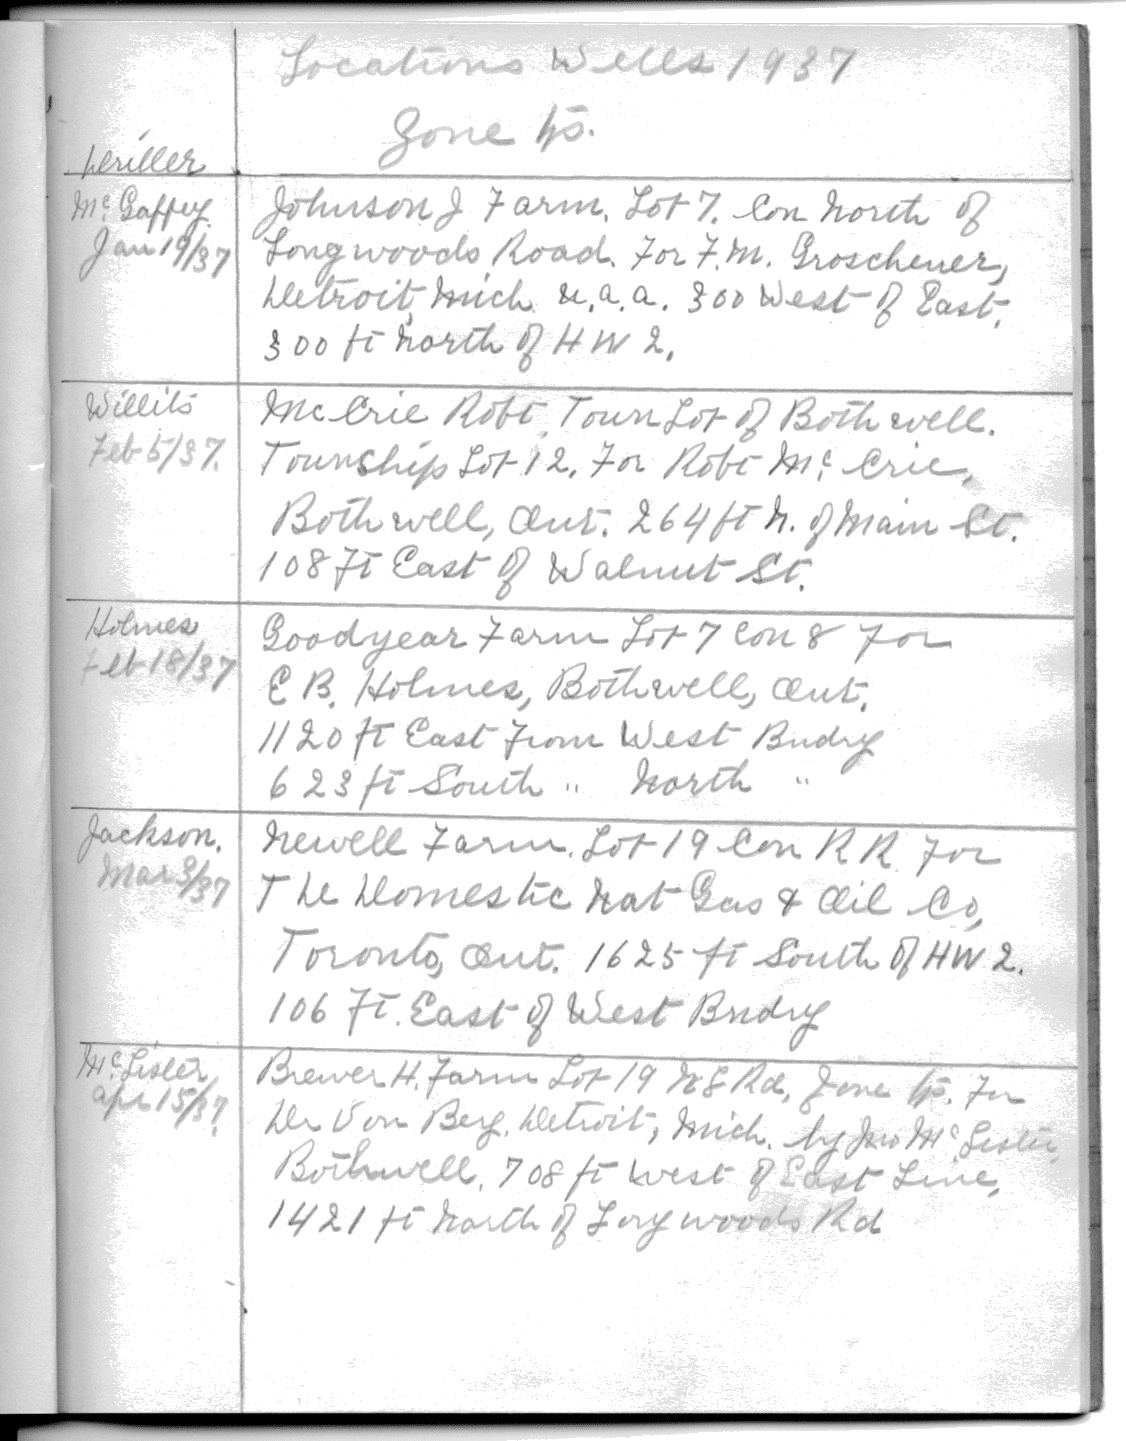 Locations Wells 1937
Zone Tp.
Driller
McGaffey
Jan 19/37
Johnson J Farm. Lot 7. Con North of
Longwoods Road. For F.M. Groschener,
Detroit, Mich U.S.A. 300 West of East.
300 ft North of HW 2.
Willits
Feb 5/37.
McCrie Robt. Town Lot of Bothwell.
Township Lot 12. For Robt McCrie,
Bothwell, Ont. 264 ft N. of Main St.
108 Ft East of Walnut St.
Holmes
Feb 18/37
Goodyear Farm Lot 7 Con 8 For
E B. Holmes, Bothwell, Ont.
1120 ft East From West Bndry
623 ft South " North "
Jackson.
Mar 3/37
Newell Farm. Lot 19 Con R R For
The Domestic Nat Gas & Oil Co,
Toronto, Ont. 1625 ft South of HW 2.
106 Ft. East of West Bndry
McLister
Apr 15/37.
Brewer H. Farm Lot 19 Rd, Zone Tp. For
Dr Von Berg, Detroit, Mich. by Jno McLister,
Bothwell. 708 ft West of East Line,
1421 ft North of Longwoods Rd